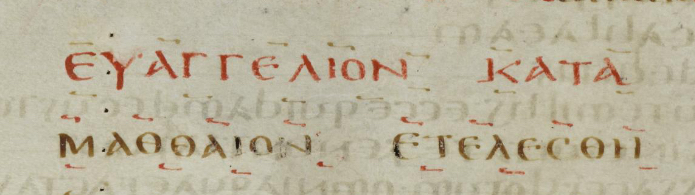 ΕΥΑΓΓΕΛΙΟΝ ΚΑΤΑ
ΜΑΘΘΑΙΟΝ ΕΤΕΛΕСΘΗ